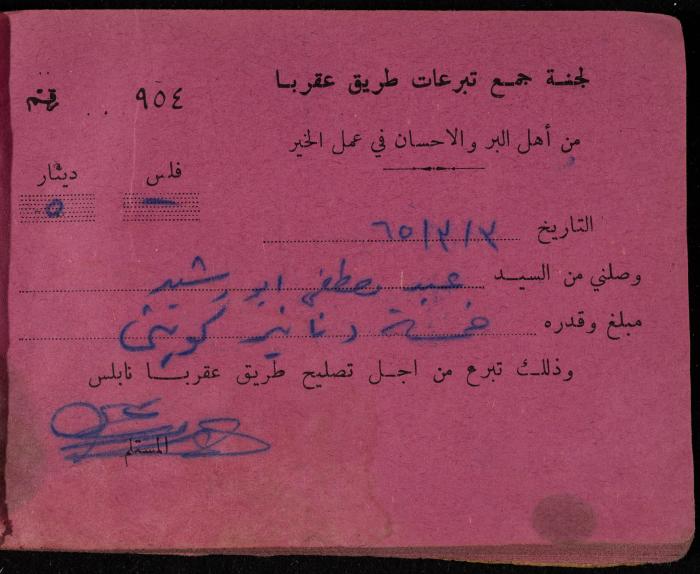 لجنة جمع تبرعات طريق عقربا
رقم ٩٥٤
من أهل البر والاحسان في عمل الخير
فلس دينار
— ٥
التاريخ ٣/٣/٦٥
وصلني من السيد عبد مصطفى ابو رشيد
مبلغ وقدره خمسة دنانير كويتي
وذلك تبرع من اجل تصليح طريق عقربا نابلس
المستلم